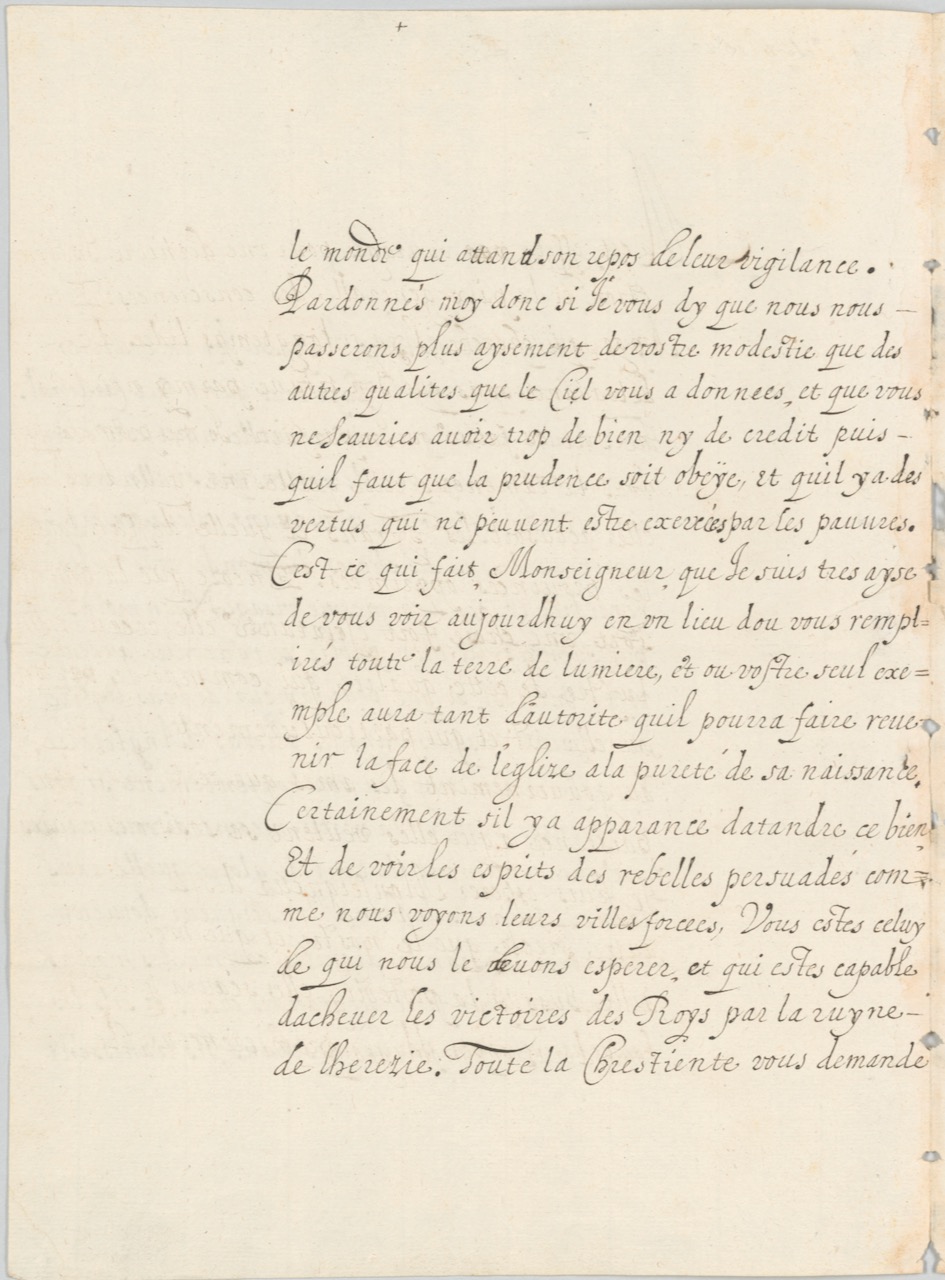 le monde qui attand son repos de leur vigilance.
Pardonnés moy donc si Je vous dy que nous nous –
passerons plus aysement de vostre modestie que des
autres qualites que le Ciel vous a donnees, et que vous
ne scauries auoir trop de bien ny de credit puis –
quil faut que la prudence soit obeÿe, et quil y a des
vertus qui ne peuuent estre exercées par les pauures.
Cest ce qui fait, Monseigneur, que Je suis tres ayse
de vous voir aujourdhuy en vn lieu dou vous rempl=
irés toute la terre de lumiere, et ou vostre seul exe=
mple aura tant d'autorite quil pourra faire reue-
nir la face de l'eglize a la pureté de sa naissance.
Certainement sil y a apparance datandre ce bien,
Et de voir les esprits des rebelles persuadés com=
me nous voyons leurs villes forcees, Vous estes celuy
de qui nous le deuons esperer, et qui estes capable
dacheuer les victoires des Roys par la ruyne –
de lherezie. Toute la Chrestiente vous demande